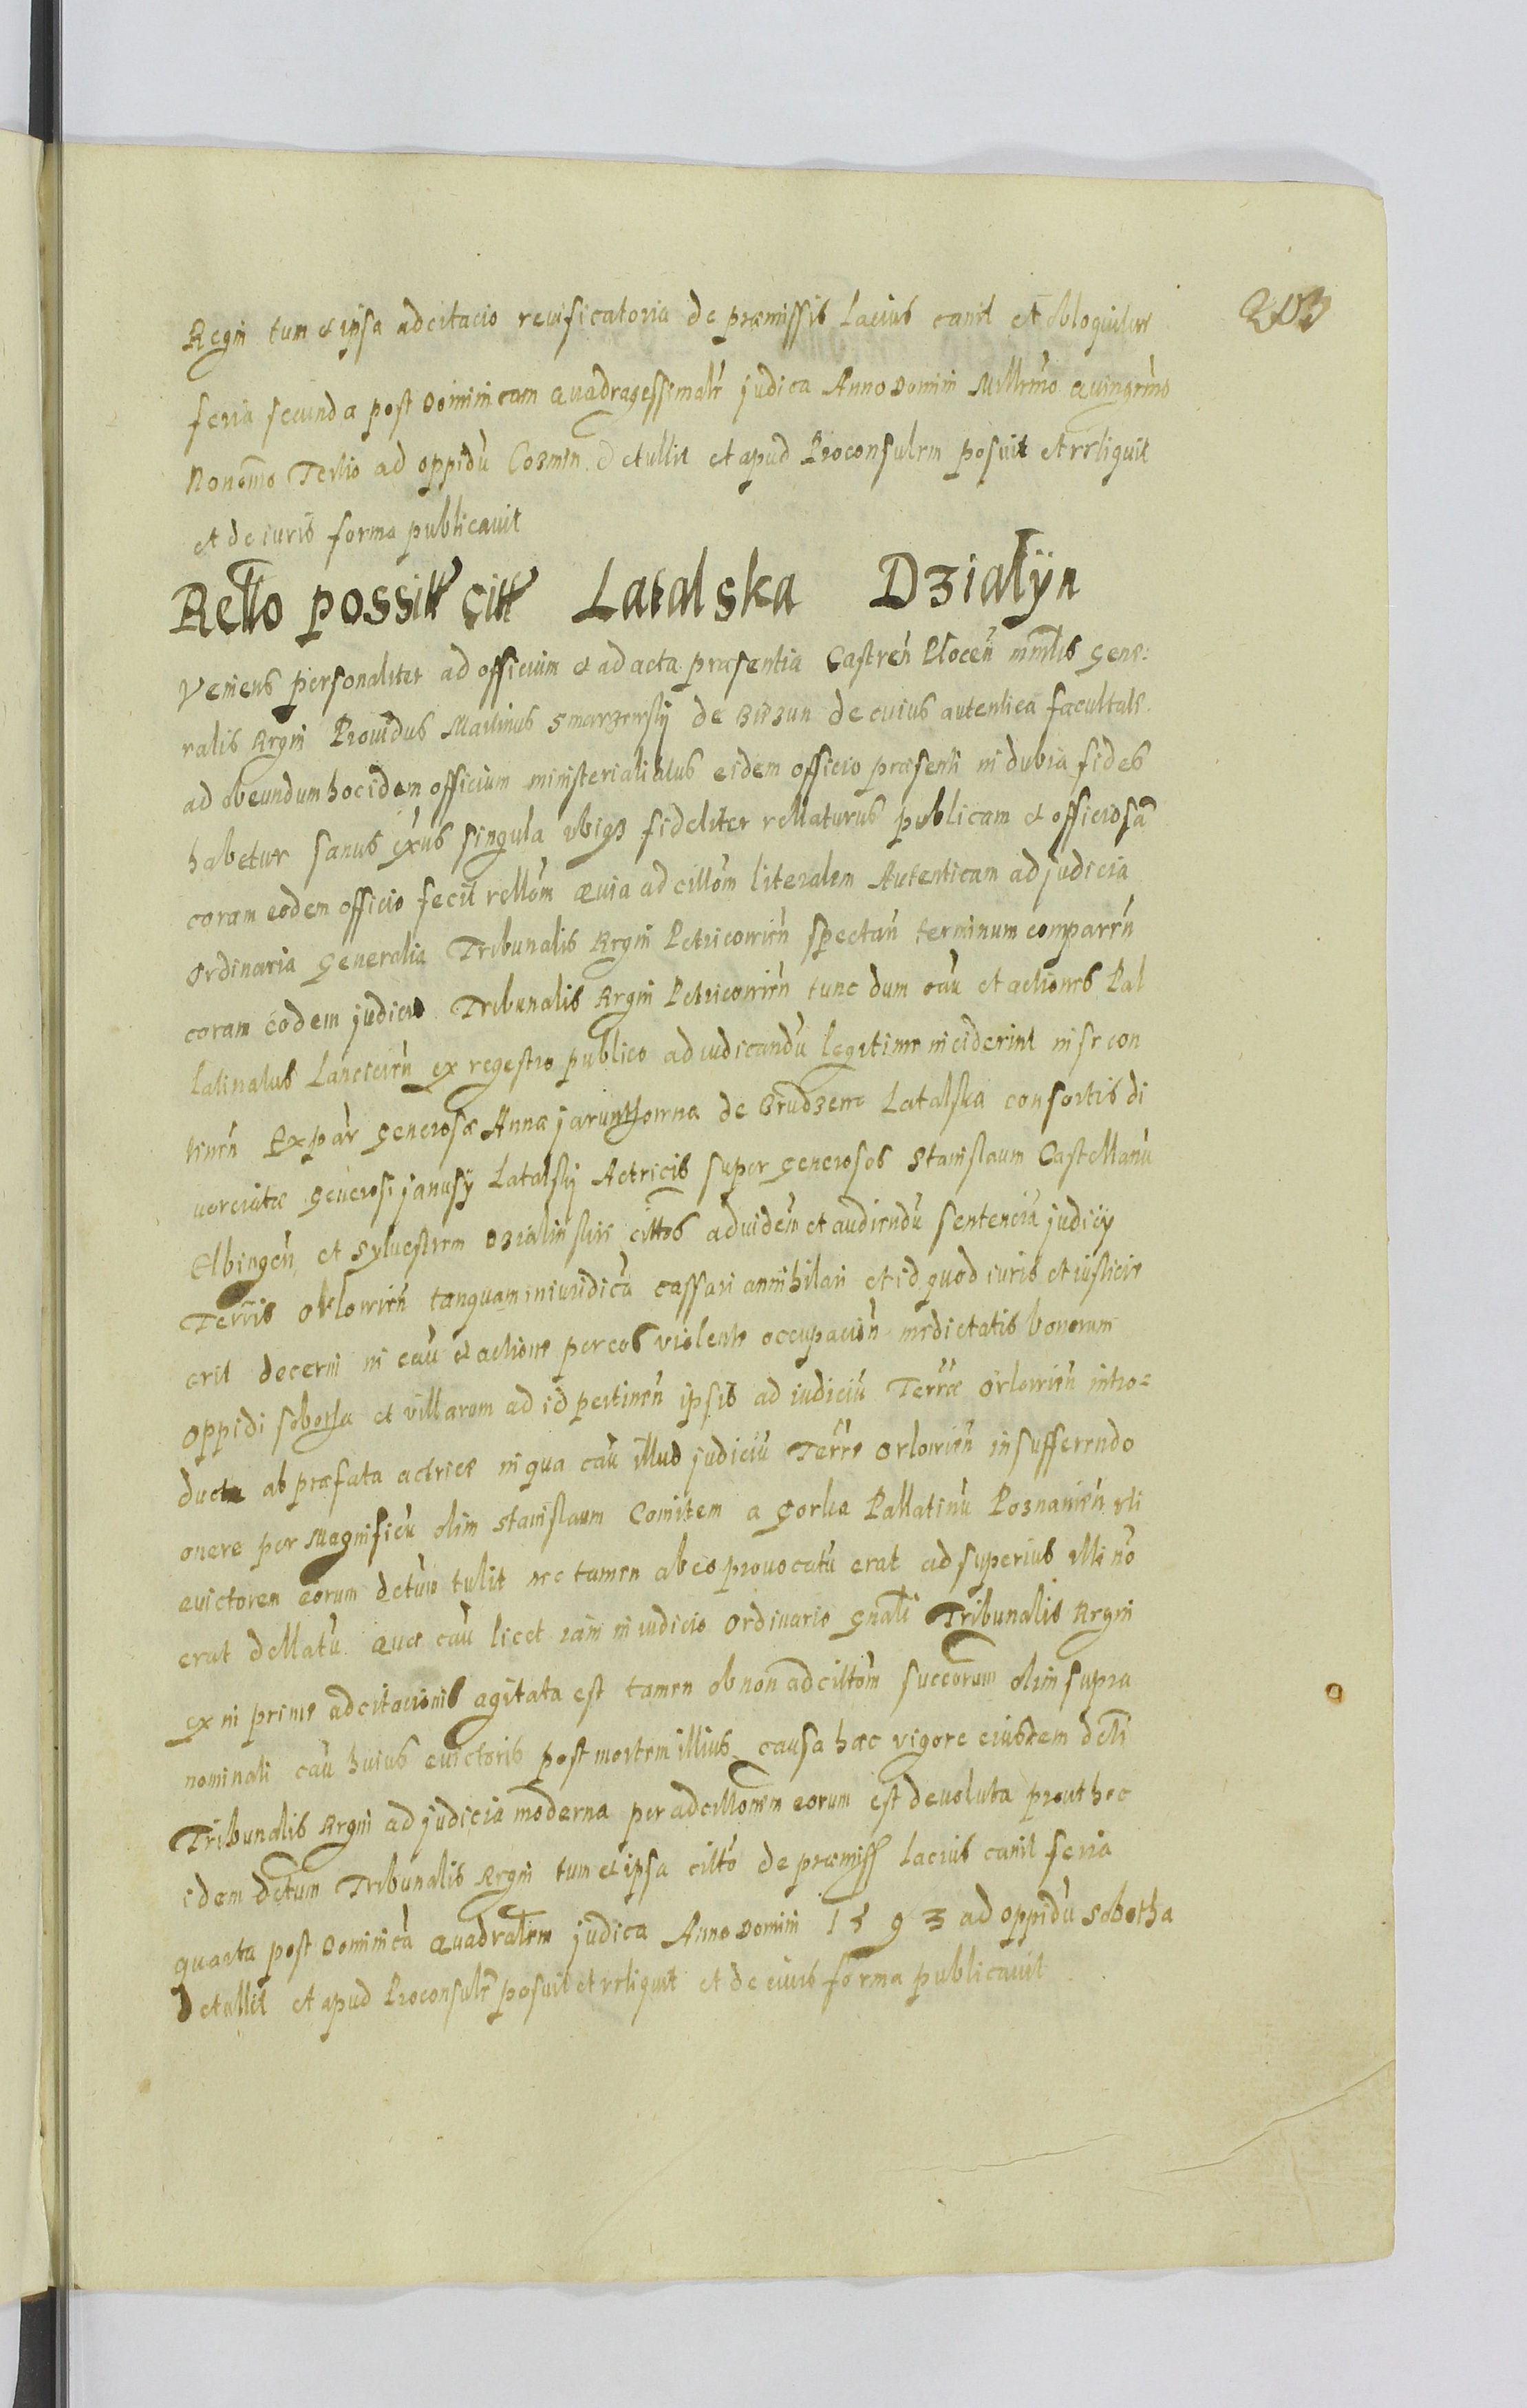 203
Regni tum et ipsa adcitacio reuisicatoria de præmissis lacius canit et obloquitur
feria secunda post Dominicam Quadragessimale Judica Anno Domini Millesimo Quingesimo
Nonosimo Tertio ad oppidu Cozmin detullit et apud Proconsulem posuit et reliquit
et de iuris forma publicauit
Rello possitt citt Latalska Dzialÿn
Veniens personaliter ad officium et ad acta præsentia Castren Plocen mnlis gene:
ralis Regni Prouidus Martinus Smarzewsky de Biezun de cuius autentica facultate
ad obeundum hoc idem officium ministerialitatus eidem officio præsenti indubia fides
habetur sanus exns singula vbiqz fideliter rellaturus publicam et officiosa
coram eodem officio fecit rellom Quia adcittom literalem Autenticam ad judicia
ordinaria generalia Tribunalis Regni Petricouien spectan terminum comparen
coram eodem judicio Tribunalis Regni Petricouien tunc dum cau et actiones Pal
latinatus Lancicien ex regestro publico adiudicandu legitime inciderint in se con
tinen Ex par Generosæ Annæ jarunthowna de Brudzewo Latalska consortis di
uorciatæ Generosi janusÿ Latalskj Actricis super Generosos Stanislaum Castellanu
Elbingen et Syluestrem Dzialinskie cittos ad viden et audiendu sentencia judicÿ
Terris Orlowien tanquam iniuridicu cassari annihilari et id quod iuris et iusticie
erit decerni in cau et actione per eos violente occupacion medietatis bonorum
oppidi sobotha et villarum ad id pertinen ipsis ad iudiciu Terræ Orlowien intro=
ducta ab præfata actrice in qua cau illud judiciu Terre Orlowien in sufferendo
onere per Magnificu olim Stanislaum Comitem a Gorka Pallatinu Poznanien vti
euictorem eorum detum tulit nec tamen ab eo prouocatu erat ad superius illi no
erat dellatu Quæ cau licet iam in iudicio Ordinario Gnali Tribunalis Regni
ex in prime adcitacionis agitata est tamen ob non adcittom succorum olim supra
nominati cau huius euictoris post mortem illius causa hæc vigore eiusdem deti
Tribunalis Regni ad judicia moderna per adcittonem eorum est deuoluta prout hoc
idem detum Tribunalis Regni tum et ipsa citto de præmiss lacius canit feria
quarta post Dominica Quadralem judica Anno Domini 1593 ad oppidu sobotha
Detullit et apud Proconsule posuit et reliquit et de iuris forma publicauit